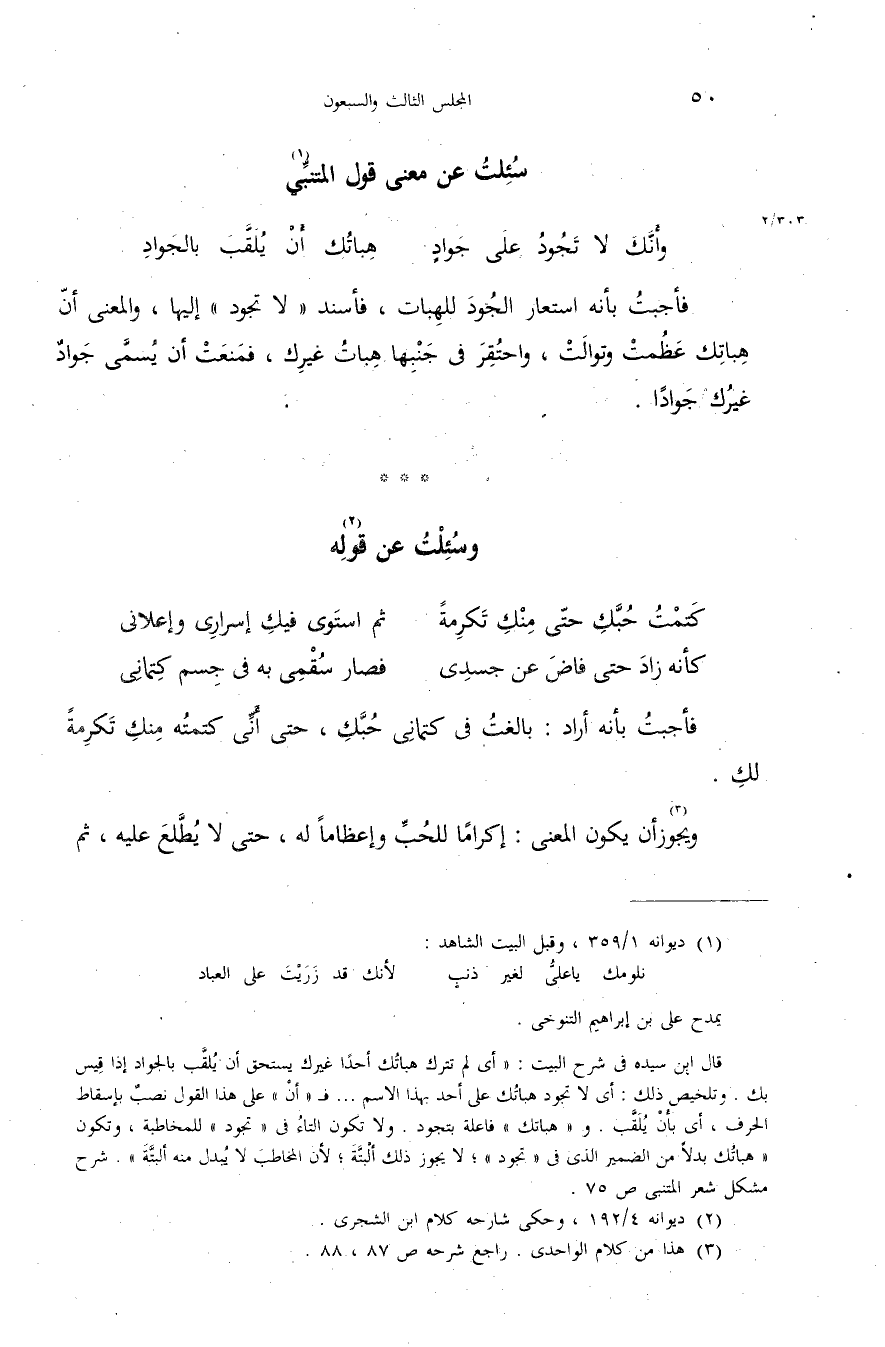 ٥٠ المجلس الثالث والسبعون
سُئِلتُ عن معنى قول المتنبِّي(١)
٢/٣٠٣
وأَنَّكَ لا تَجُودُ علَى جَوادٍ هِباتُك أَنْ يُلَقَّبَ بالجَوادِ
فأجبتُ بأنه استعار الجُودَ للهِبات ، فأسند « لا تجود » إليها ، والمعنى أنّ
هِباتِك عَظُمتْ وتوالَتْ ، واحتُقِرَ فى جَنْبِها هِباتُ غيرِك ، فمَنعَتْ أن يُسمَّى جَوادٌ
غيرُك جَوادًا .
* * *
وسُئِلْتُ عن قولِه(٢)
كَتمْتُ حُبَّكِ حتّى مِنْكِ تَكرِمةً ثم استَوى فيكِ إسرارِى وإعلانى
كأنه زادَ حتى فاضَ عن جسدِى فصار سُقْمِى به فى جِسم كِتمانِى
فأجبتُ بأنه أراد : بالغتُ فى كتمانِى حُبَّكِ ، حتى أَنِّى كتمتُه مِنكِ تَكرِمةً
لكِ .
ويجوزأن(٣) يكون المعنى : إكرامًا للحُبِّ وإعظاماً له ، حتى لا يُطَّلعَ عليه ، ثم
(١) ديوانه ٣٥٩/١ ، وقبل البيت الشاهد :
نلومك ياعلىُّ لغير ذنبٍ لأنك قد زَرَيْتَ على العباد
يمدح على بن إبراهيم التنوخى .
قال ابن سيده فى شرح البيت : « أى لم تترك هباتُك أحدًا غيرك يستحق أن يُلقَّب بالجواد إذا قِيس
بك . وتلخيص ذلك : أى لا تجود هباتُك على أحد بهذا الاسم ... فـ « أنْ » على هذا القول نصبٌ بإسقاط
الحرف ، أى بأنْ يُلَقَّب . و « هباتك » فاعلة بتجود . ولا تكون التاءُ فى « تجود » للمخاطبة ، وتكون
« هباتُك بدلاً من الضمير الذى فى « تجود » ؛ لا يجوز ذلك ألْبتَّةَ ؛ لأن المخاطبَ لا يُبدل منه ألبتَّةَ » . شرح
مشكل شعر المتنبى ص ٧٥ .
(٢) ديوانه ١٩٢/٤ ، وحكى شارحه كلام ابن الشجرى .
(٣) هذا من كلام الواحدى . راجع شرحه ص ٨٧ ، ٨٨ .